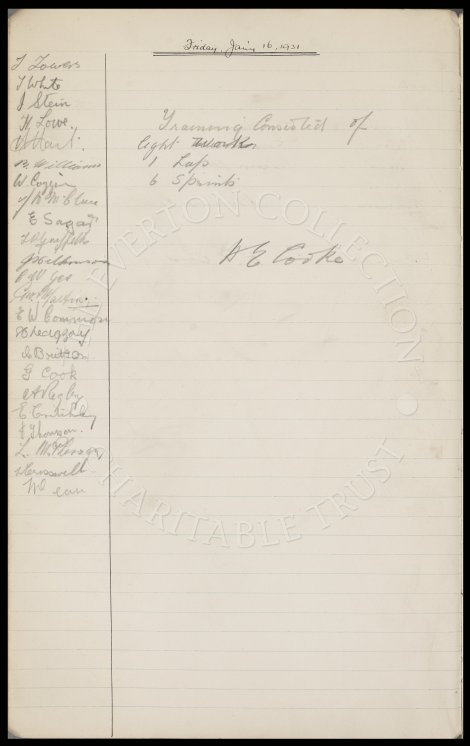 Friday, Jany 16, 1931
T Towers
T White
J Stein
H Lowe
Hart
B Williams
W Coggins
J R McClure
E Sagar
Griffiths
J Wilkinson
C W Gee
Geo Martin.
E W Common
A Clark
G Cook
A Rigby
E Critchley
J Thomson.
L. McPherson
Cresswell
W Dean
Training Consisted of
light work
1 Lap
6 Sprints
H E Cooke
EVERTON COLLECTION
CHARITABLE TRUST